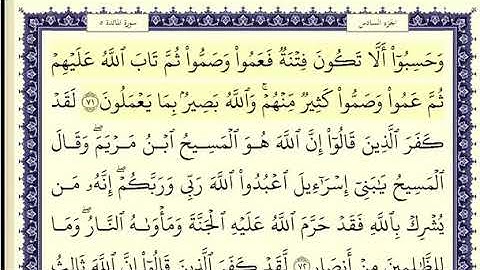 الجزء السادس
سورة المائدة ٥
وَحَسِبُوٓا۟ أَلَّا تَكُونَ فِتْنَةٌ فَعَمُوا۟ وَصَمُّوا۟ ثُمَّ تَابَ ٱللَّهُ عَلَيْهِمْ
ثُمَّ عَمُوا۟ وَصَمُّوا۟ كَثِيرٌ مِّنْهُمْ ۚ وَٱللَّهُ بَصِيرٌۢ بِمَا يَعْمَلُونَ ٧١ لَقَدْ
كَفَرَ ٱلَّذِينَ قَالُوٓا۟ إِنَّ ٱللَّهَ هُوَ ٱلْمَسِيحُ ٱبْنُ مَرْيَمَ ۖ وَقَالَ
ٱلْمَسِيحُ يَٰبَنِىٓ إِسْرَٰٓءِيلَ ٱعْبُدُوا۟ ٱللَّهَ رَبِّى وَرَبَّكُمْ ۖ إِنَّهُۥ مَن
يُشْرِكْ بِٱللَّهِ فَقَدْ حَرَّمَ ٱللَّهُ عَلَيْهِ ٱلْجَنَّةَ وَمَأْوَىٰهُ ٱلنَّارُ ۖ وَمَا
لِلظَّٰلِمِينَ مِنْ أَنصَارٍ ٧٢ لَّقَدْ كَفَرَ ٱلَّذِينَ قَالُوٓا۟ إِنَّ ٱللَّهَ ثَالِثُ